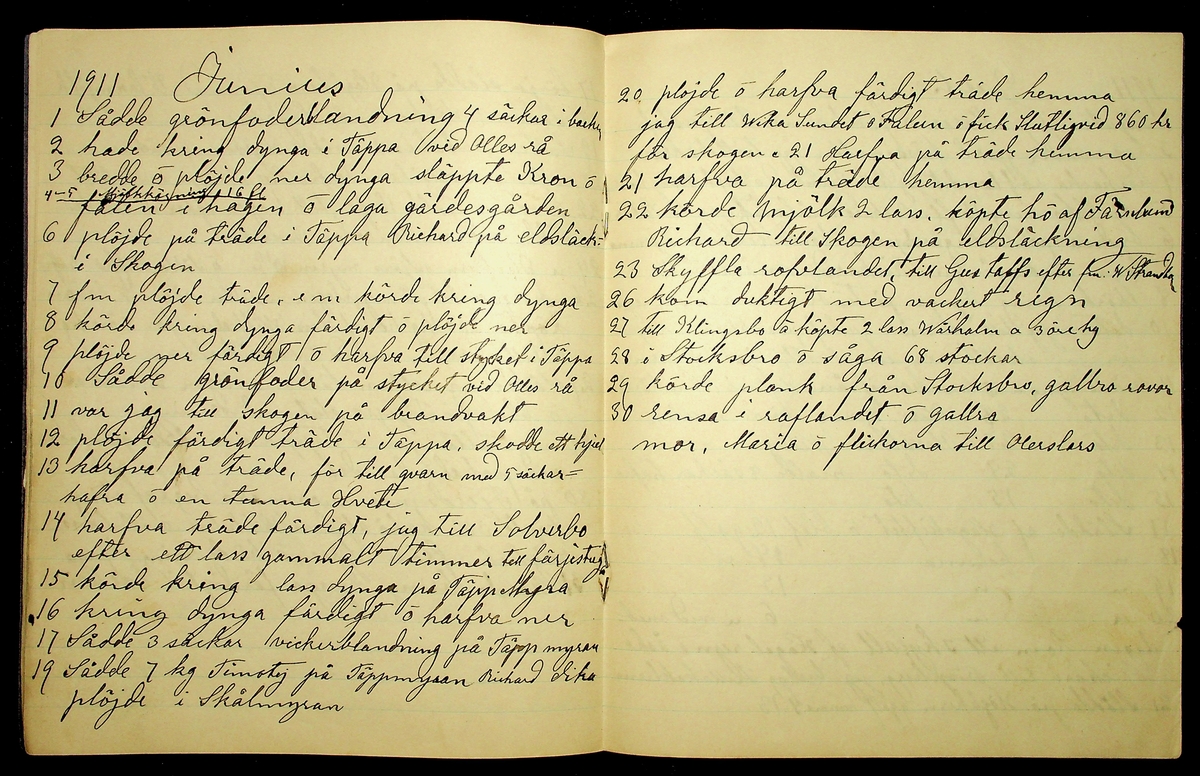 1911 Junius
1 Sådde grönfoderblandning 4 säckar i backen
2 hade kring dynga i Täppa vid Olles rå
3 bredde ö plöjde ner dynga släppte Kron ö
4-5 16
fålen i hagen ö laga gärdesgården
6 plöjde på träde i Täppa Richard på eldsläck=
i Skogen
7 fm plöjde träde, e m körde kring dynga
8 körde kring dynga färdigt ö plöjde ner
9 plöjde ner färdigt ö harfva till stycket i Täppa
10 Sådde grönfoder på stycket vid Olles rå
11 var jag till skogen på brandvakt
12 plöjde färdigt träde i Täppa, skodde ett hjul
13 harfva på träde, för till qvarn med 5 säckar=
hafra ö en tunna Hvete
14 harfva träde färdigt, jag till Solverbo
efter ett lass gammalt timmer till färjstuga
15 körde kring lass dynga på Täpp Myra
16 kring dynga färdigt ö harfva ner
17 Sådde 3 säckar vickerblandning på Täppmyran
19 Sådde 7 kg Timotej på Täppmyran Richard dika
plöjde i Skålmyran
20 plöjde ö harfva färdigt träde hemma
jag till Wika Sundet ö Falun ö fick Slutliqvid 860 kr
för skogen e 21 Harfva på träde hemma
21 harfva på träde hemma
22 körde mjölk 2 lass, köpte hö af
Richard till Skogen på eldsläckning
23 Skyffla rofvlandet, till Gustaffs efter fru W. Strandberg
26 kom duktigt med vackert regn
27 till Klingsbo ö köpte 2 lass Wårhalm a 3 öre kg
28 i Stocksbro ö såga 68 stockar
29 körde plank från Stocksbro, gallra rovor
30 rensa i roflandet ö gallra
mor, Maria ö flickorna till Olerslars